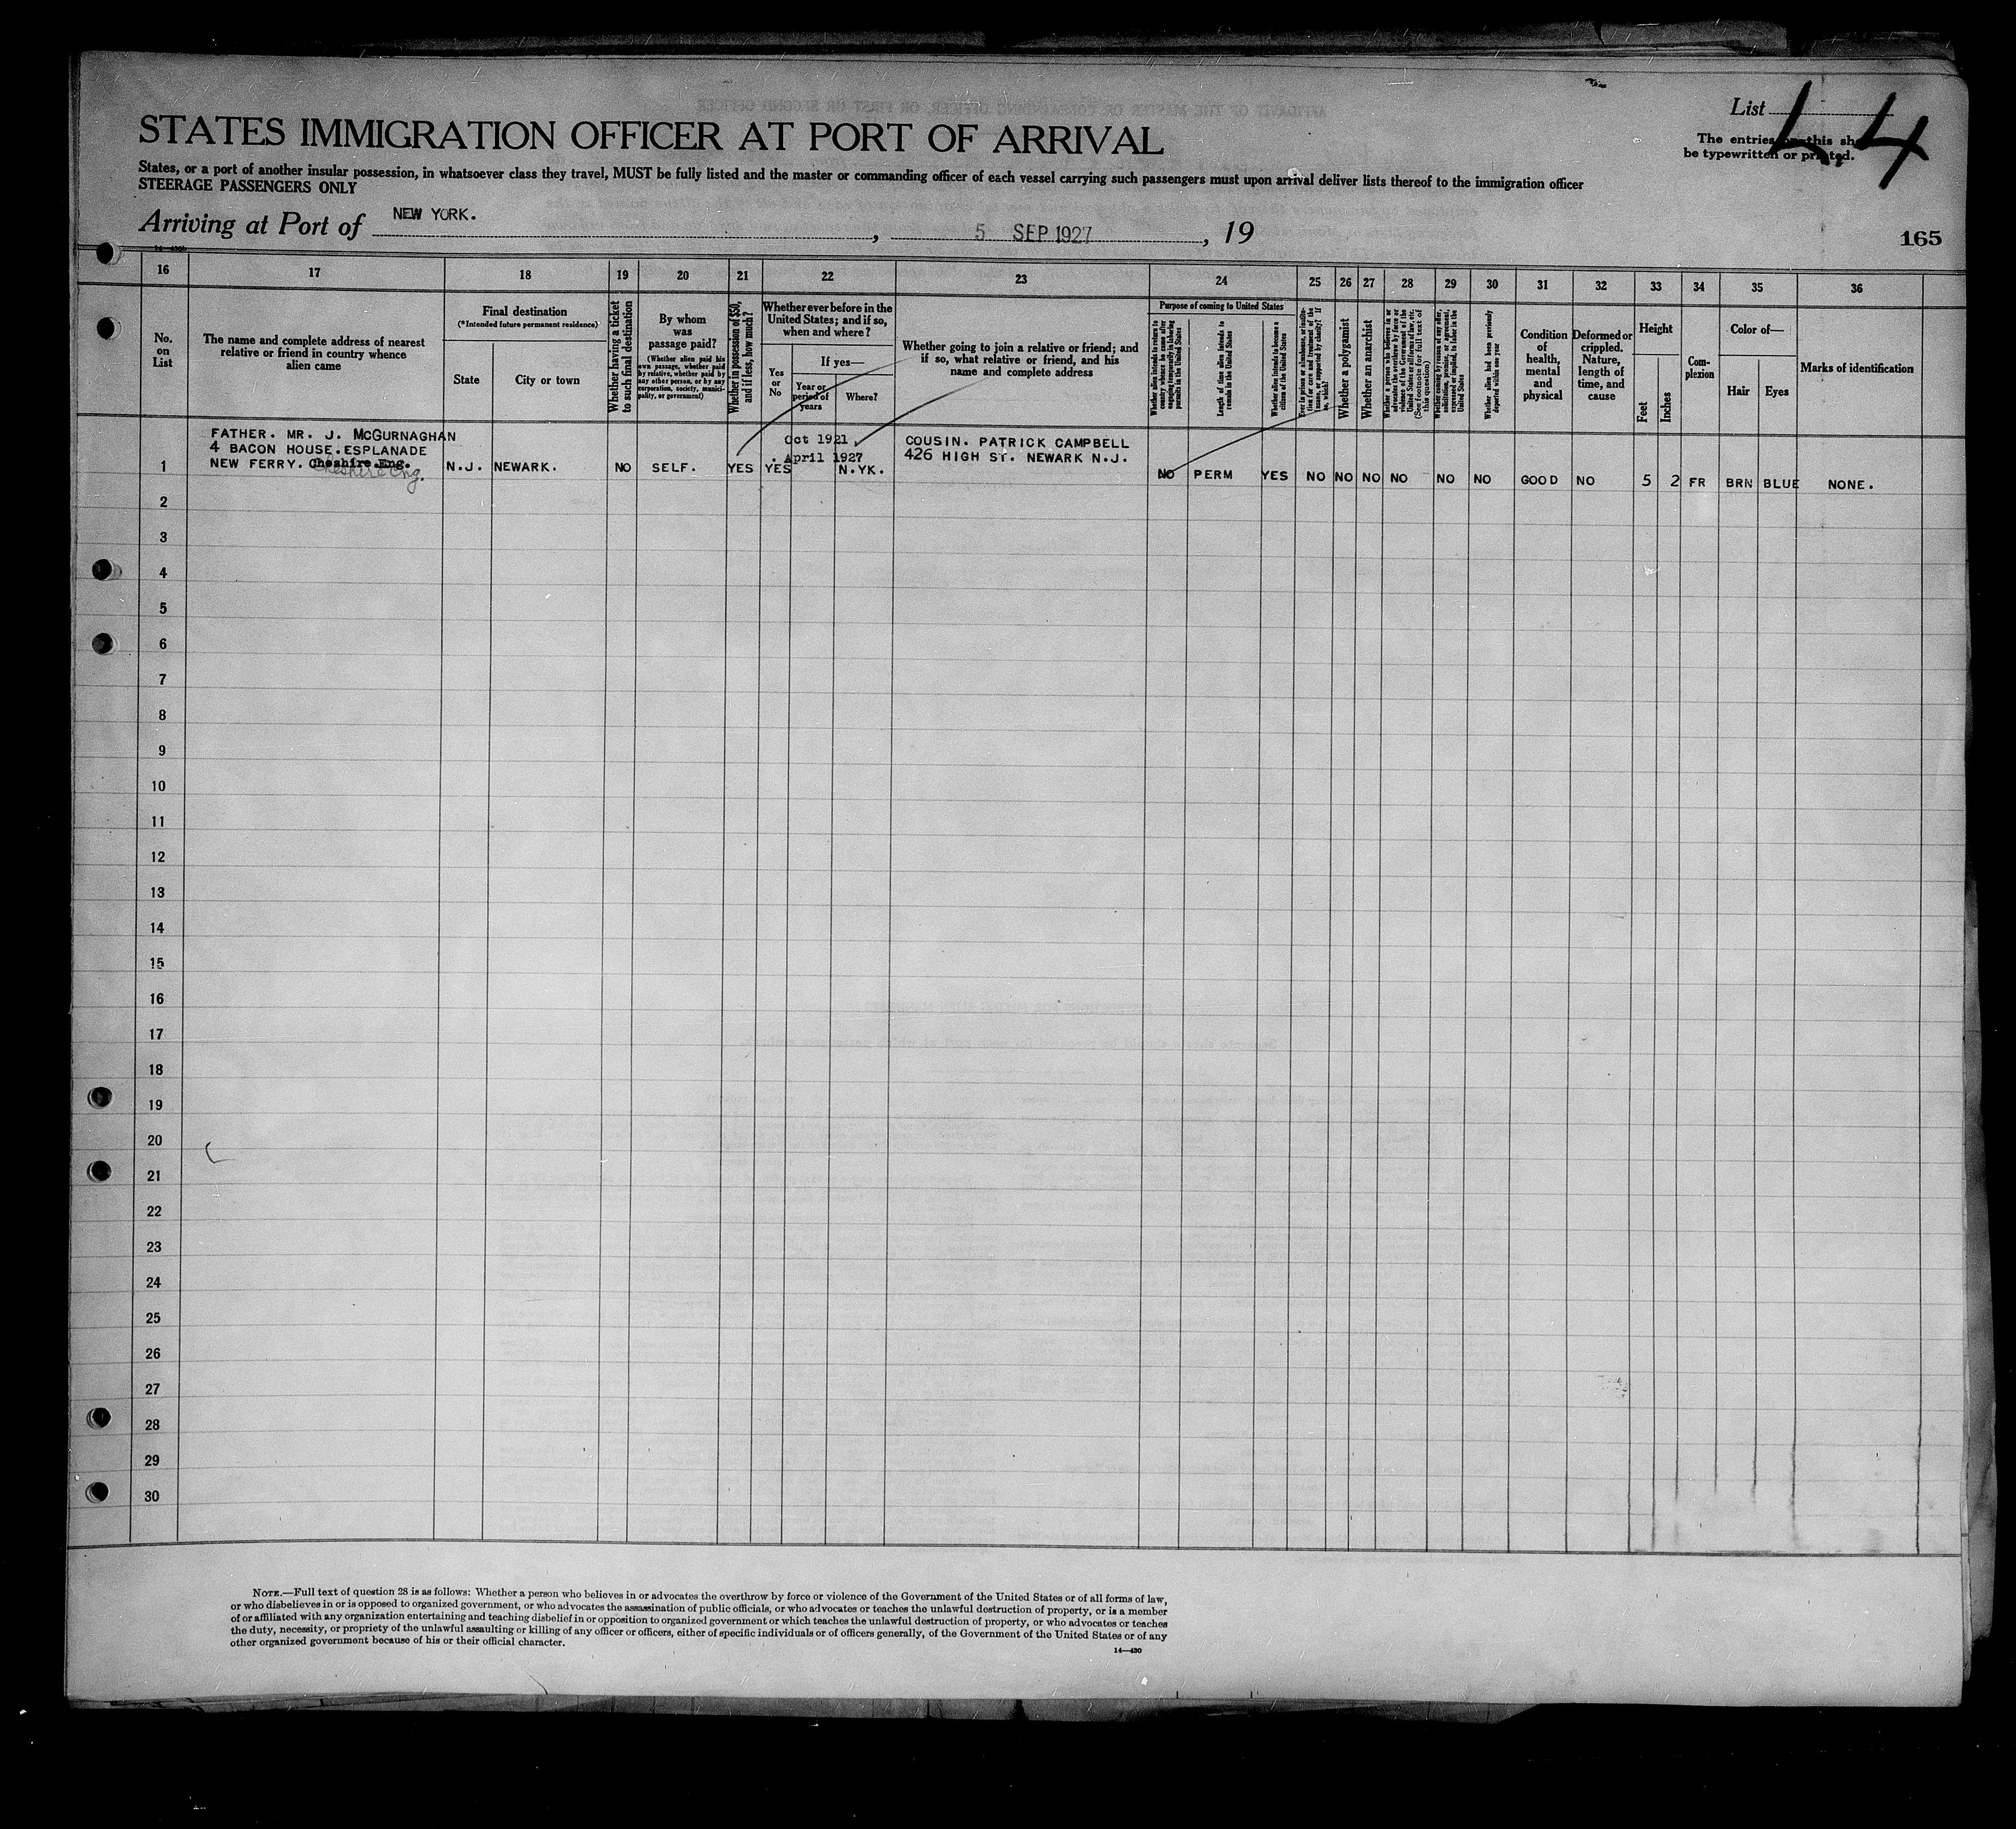 List L.4
STATES IMMIGRATION OFFICER AT PORT OF ARRIVAL
The entries on this sh
be typewritten or printed.
States, or a port of another insular possession, in whatsoever class they travel, MUST be fully listed and the master or commanding officer of each vessel carrying such passengers must upon arrival deliver lists thereof to the immigration officer
STEERAGE PASSENGERS ONLY
Arriving at Port of NEW YORK. , 5 SEP 1927 , 19
165
14—430
16 17 18 19 20 21 22 23 24 25 26 27 28 29 30 31 32 33 34 35 36
No. on List
The name and complete address of nearest
relative or friend in country whence
alien came
Final destination
(*Intended future permanent residence)
State
City or town
Whether having a ticket
to such final destination
By whom
was
passage paid?
(Whether alien paid his
own passage, whether paid
by relative, whether paid by
any other person, or by any
corporation, society, munici-
pality, or government)
Whether in possession of $50,
and if less, how much?
Whether ever before in the
United States; and if so,
when and where?
Yes
or
No
If yes—
Year or
period of
years
Where?
Whether going to join a relative or friend; and
if so, what relative or friend, and his
name and complete address
Purpose of coming to United States
Whether alien intends to return to
country whence he came after
engaging temporarily in laboring
pursuits in the United States
Length of time alien intends to
remain in the United States
Whether alien intends to become a
citizen of the United States
Ever in prison or almshouse, or institu-
tion for care and treatment of the
insane, or supported by charity? If
so, which?
Whether a polygamist
Whether an anarchist
Whether a person who believes in or
advocates the overthrow by force or
violence of the Government of the
United States or all forms of law, etc.
(See footnote for full text of
this question)
Whether coming by reason of any offer,
solicitation, promise, or agreement,
expressed or implied, to labor in the
United States
Whether alien had been previously
deported within one year
Condition
of
health,
mental
and
physical
Deformed or
crippled.
Nature,
length of
time, and
cause
Height
Feet
Inches
Com-
plexion
Color of—
Hair
Eyes
Marks of identification
FATHER. MR. J. McGURNAGHAN
4 BACON HOUSE.ESPLANADE
NEW FERRY. Cheshire.Eng.
Cheshire Eng.
1 N.J. NEWARK. NO SELF. YES YES
Oct 1921
. April 1927
N.YK.
COUSIN. PATRICK CAMPBELL
426 HIGH ST. NEWARK N.J.
NO PERM YES NO NO NO NO NO NO GOOD NO 5 2 FR BRN BLUE NONE.
2
3
4
5
6
7
8
9
10
11
12
13
14
15
16
17
18
19
20
21
22
23
24
25
26
27
28
29
30
NOTE.—Full text of question 28 is as follows: Whether a person who believes in or advocates the overthrow by force or violence of the Government of the United States or of all forms of law,
or who disbelieves in or is opposed to organized government, or who advocates the assassination of public officials, or who advocates or teaches the unlawful destruction of property, or is a member
of or affiliated with any organization entertaining and teaching disbelief in or opposition to organized government or which teaches the unlawful destruction of property, or who advocates or teaches
the duty, necessity, or propriety of the unlawful assaulting or killing of any officer or officers, either of specific individuals or of officers generally, of the Government of the United States or of any
other organized government because of his or their official character.
14—430